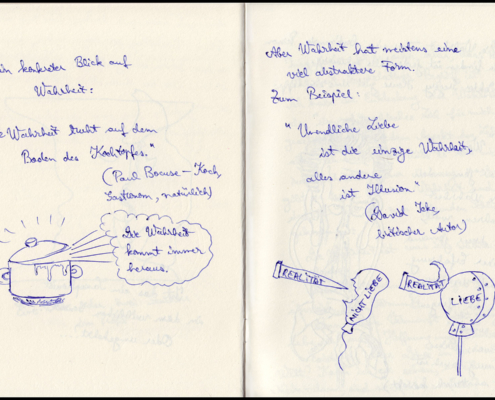 in konkreter Blick auf
Wahrheit:
e Wahrheit ruht auf dem
Boden des Kochtopfes."
(Paul Bocuse – Koch,
Gastronom, natürlich)
Die Wahrheit
kommt immer
heraus.
Aber Wahrheit hat meistens eine
viel abstraktere Form.
Zum Beispiel:
"Unendliche Liebe
ist die einzige Wahrheit,
alles andere
ist Illusion"
(David Icke,
britischer Autor)
REALITÄT
NICHT LIEBE
REALITÄT
LIEBE